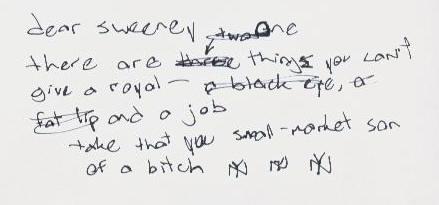 dear sweeney two One
there are three things you can't
give a royal - a black eye, a
fat lip and a job
take that you small-market son
of a bitch